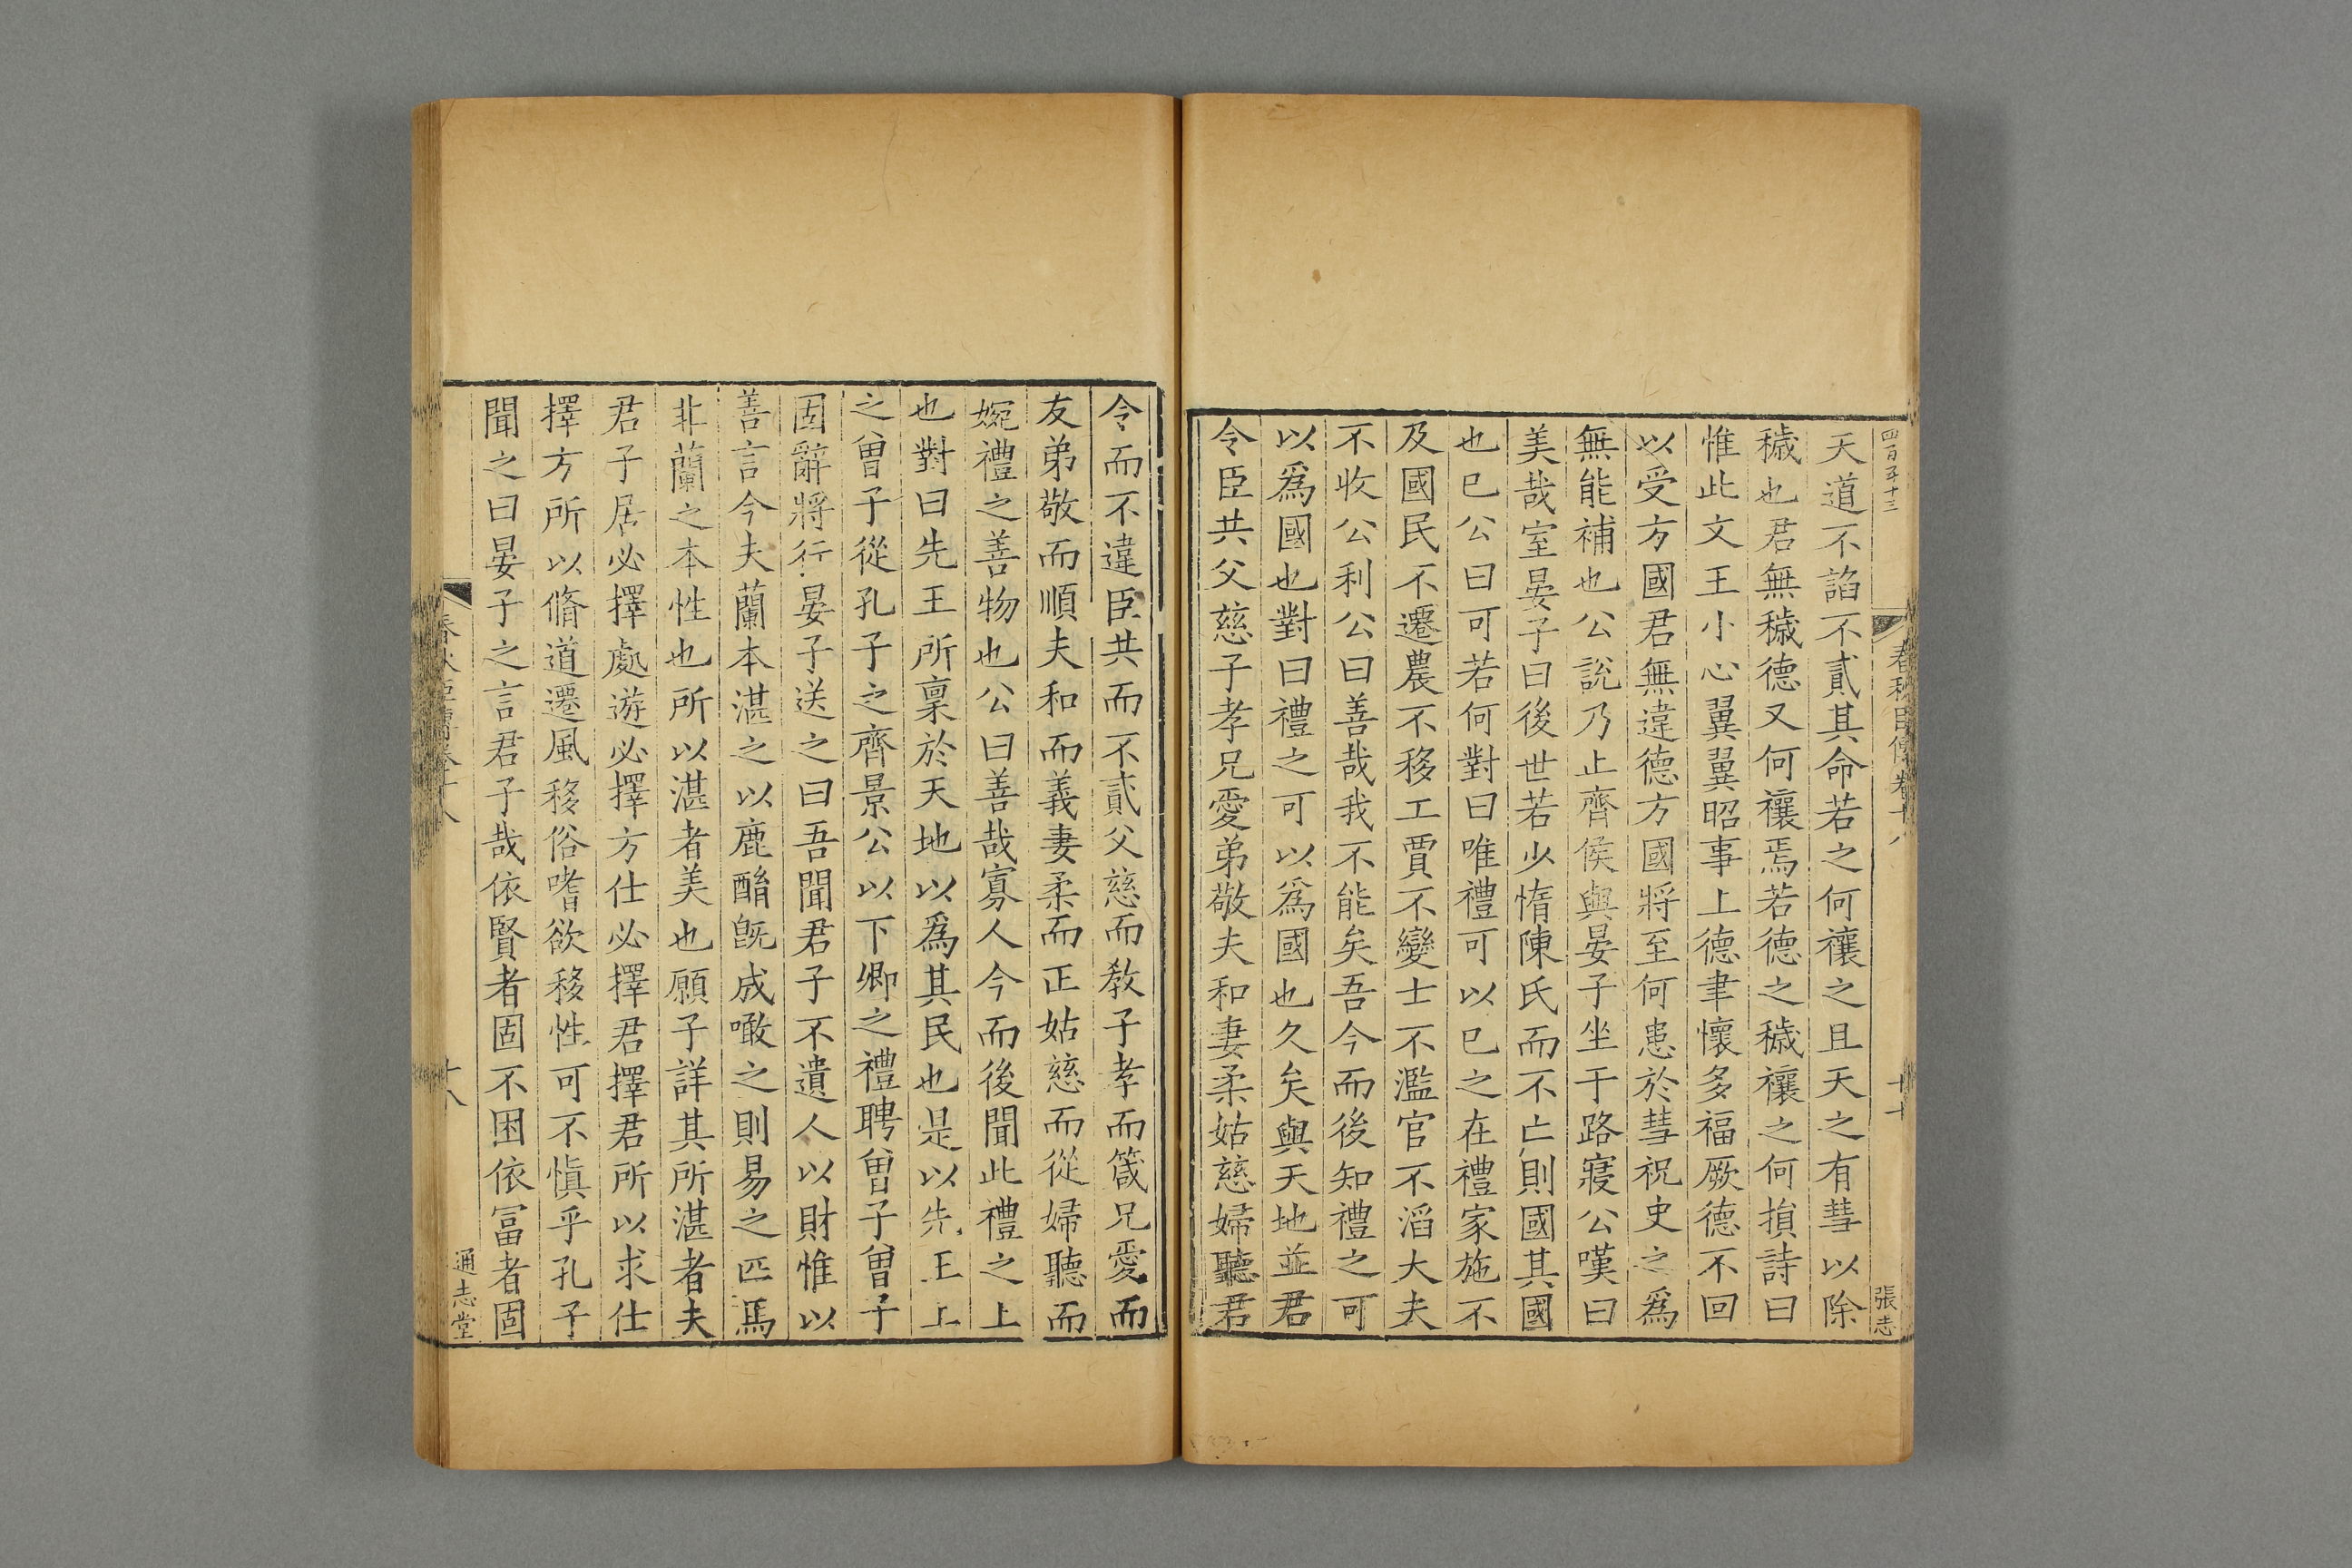 四百五十三
春秋臣傳卷十八
十七
張志
天道不謟不貳其命若之何禳之且天之有彗以除
穢也君無穢德又何禳焉若德之穢禳之何損詩曰
惟此文王小心翼翼昭事上德聿懷多福厥德不回
以受方國君無違德方國將至何患於彗祝史之爲
無能補也公說乃止齊侯與晏子坐于路寢公嘆曰
美哉室晏子曰後世若少惰陳氏而不亡則國其國
也已公曰可若何對曰唯禮可以已之在禮家施不
及國民不遷農不移工賈不變士不濫官不滔大夫
不收公利公曰善哉我不能矣吾今而後知禮之可
以爲國也對曰禮之可以爲國也久矣與天地並君
令臣共父慈子孝兄愛弟敬夫和妻柔姑慈婦聽君
令而不違臣共而不貳父慈而教子孝而箴兄愛而
友弟敬而順夫和而義妻柔而正姑慈而從婦聽而
婉禮之善物也公曰善哉寡人今而後聞此禮之上
也對曰先王所稟於天地以爲其民也是以先王上
之曾子從孔子之齊景公以下卿之禮聘曾子曾子
固辭將行晏子送之曰吾聞君子不遺人以財惟以
善言今夫蘭本湛之以鹿醢旣成噉之則易之匹馬
非蘭之本性也所以湛者美也願子詳其所湛者夫
君子居必擇處遊必擇方仕必擇君擇君所以求仕
擇方所以脩道遷風移俗嗜欲移性可不愼乎孔子
聞之曰晏子之言君子哉依賢者固不困依冨者固
春秋臣傳卷十八
十八
通志堂